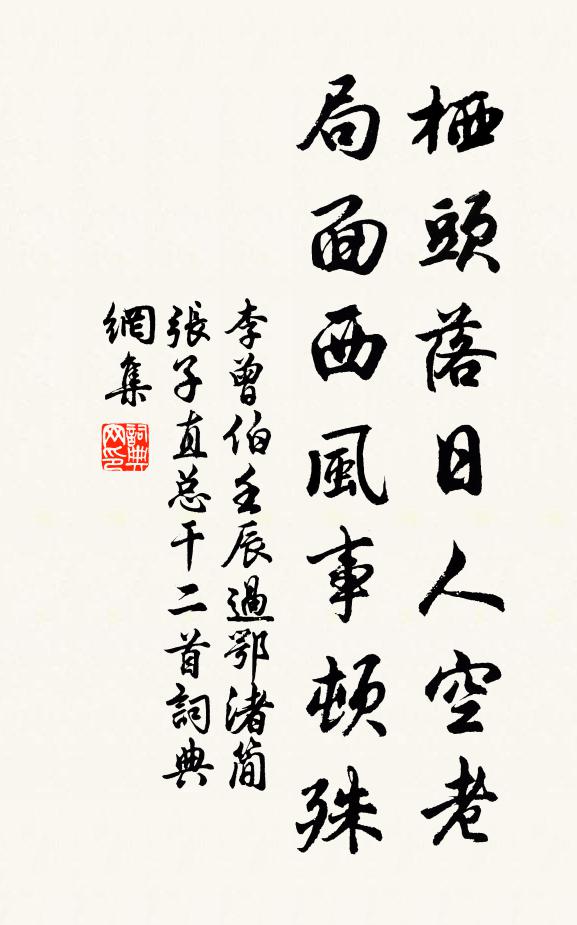 栖頭落日人空老
局面西風事頓殊
李曾伯壬辰過鄂渚简
張子直总干二首詞典
網集
詞典網印